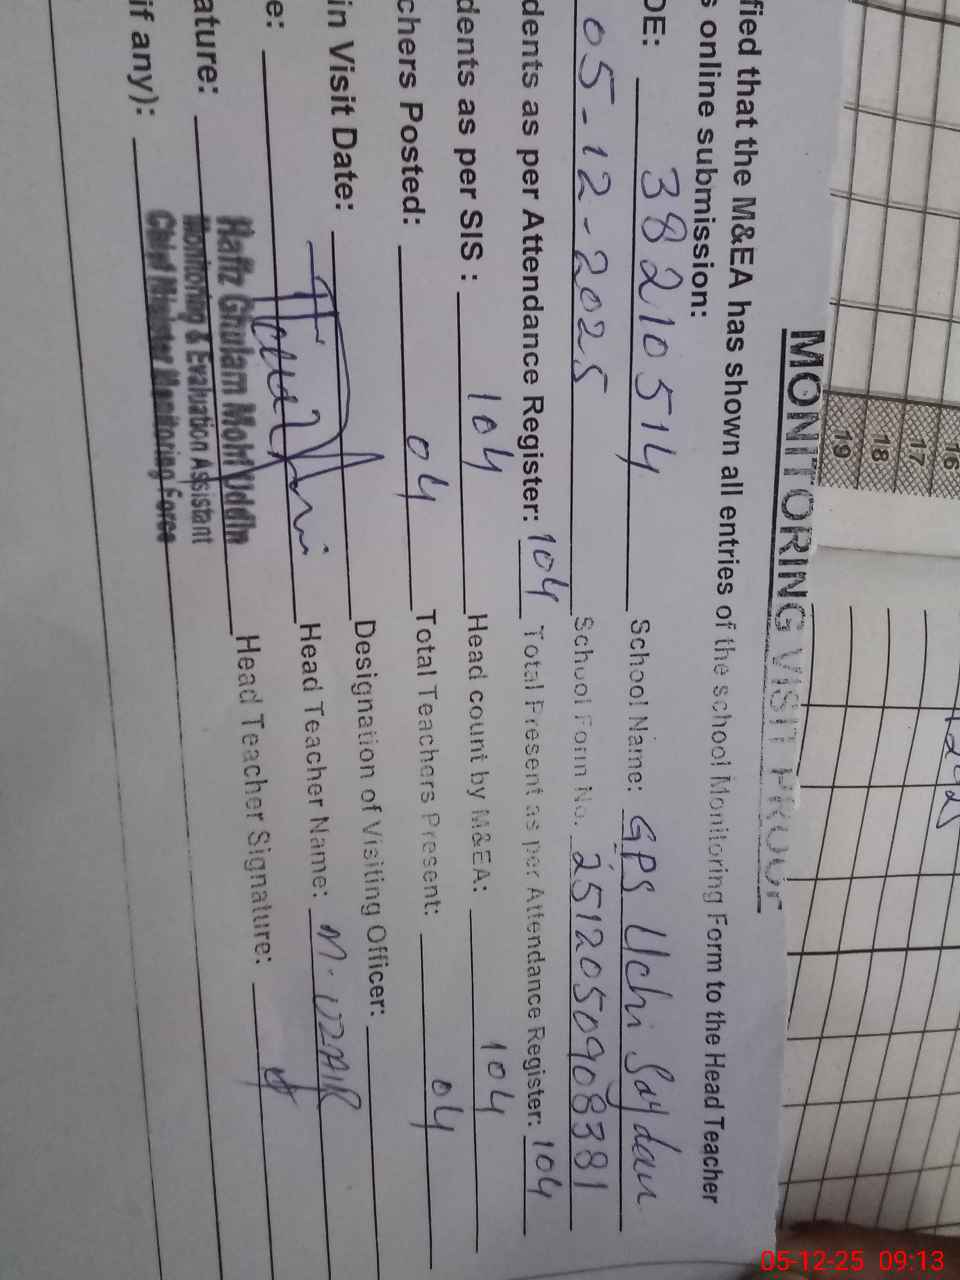 16
17
18
19
MONITORING VISIT PROOF
fied that the M&EA has shown all entries of the school Monitoring Form to the Head Teacher
s online submission:
DE: 38210514 School Name: GPS Uchi Saydan
05-12-2025 School Form No. 2512050908381
dents as per Attendance Register: 104 Total Present as per Attendance Register: 104
dents as per SIS : 104 Head count by M&EA: 104
chers Posted: 04 Total Teachers Present: 04
in Visit Date: Designation of Visiting Officer:
e: Head Teacher Name: M. UZAIR
ature: Head Teacher Signature:
if any):
Hafiz Ghulam Mohi Uddin
Monitoring & Evaluation Assistant
Chief Minister Monitoring Force
05-12-25 09:13